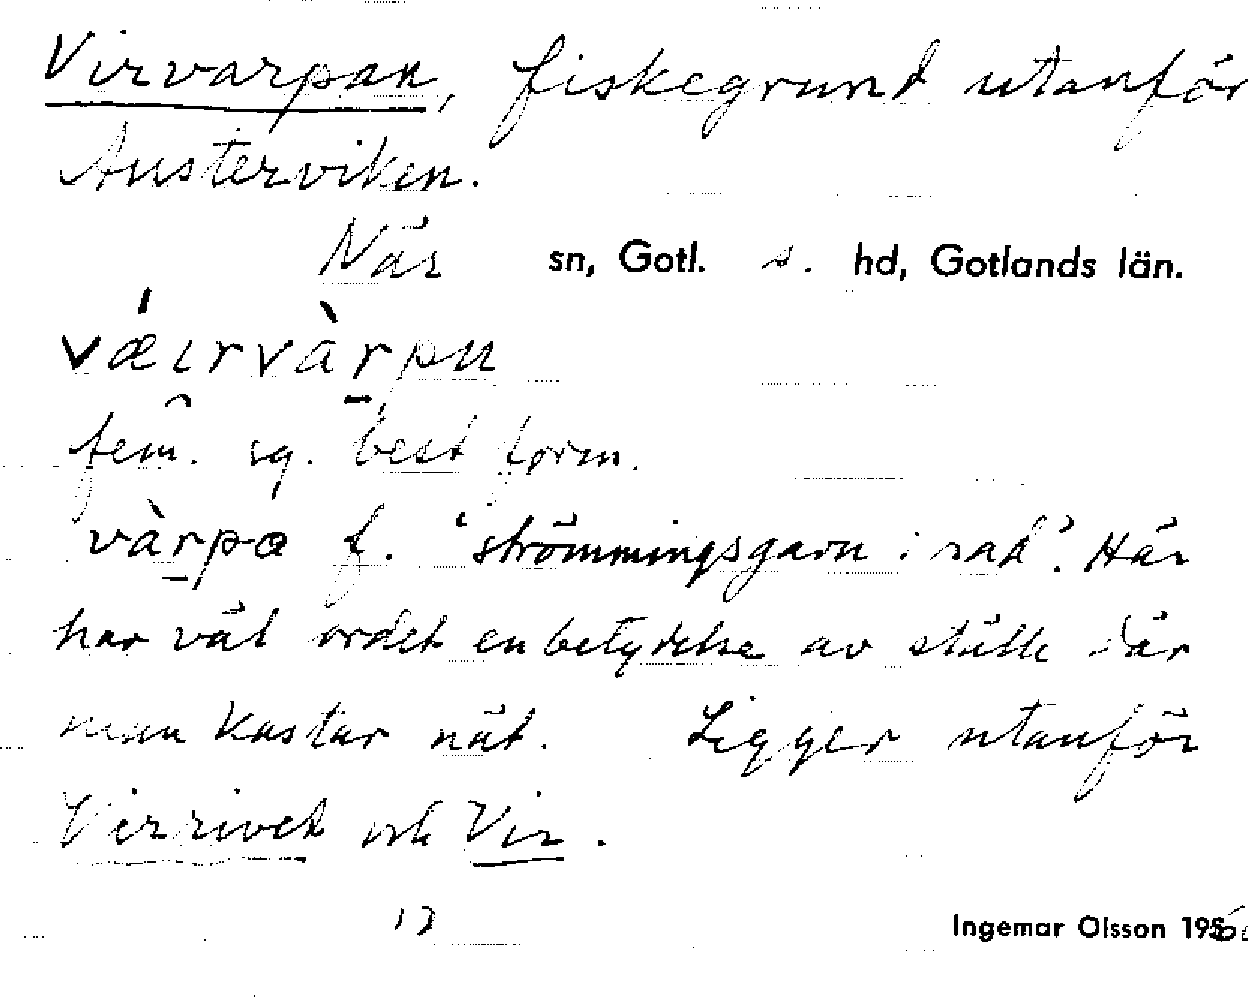 Virvarpan, fiskegrund utanför
Austerviken.
När sn, Gotl. s. hd, Gotlands län.
vǽɩrvàr̠pu
fem. sg. best form.
vàr̠pa f. "strömmingsgarn i rad". Här
har väl ordet en betydelse av ställe där
man kastar nät. Ligger utanför
Virrivet och Vir.
17
Ingemar Olsson 195